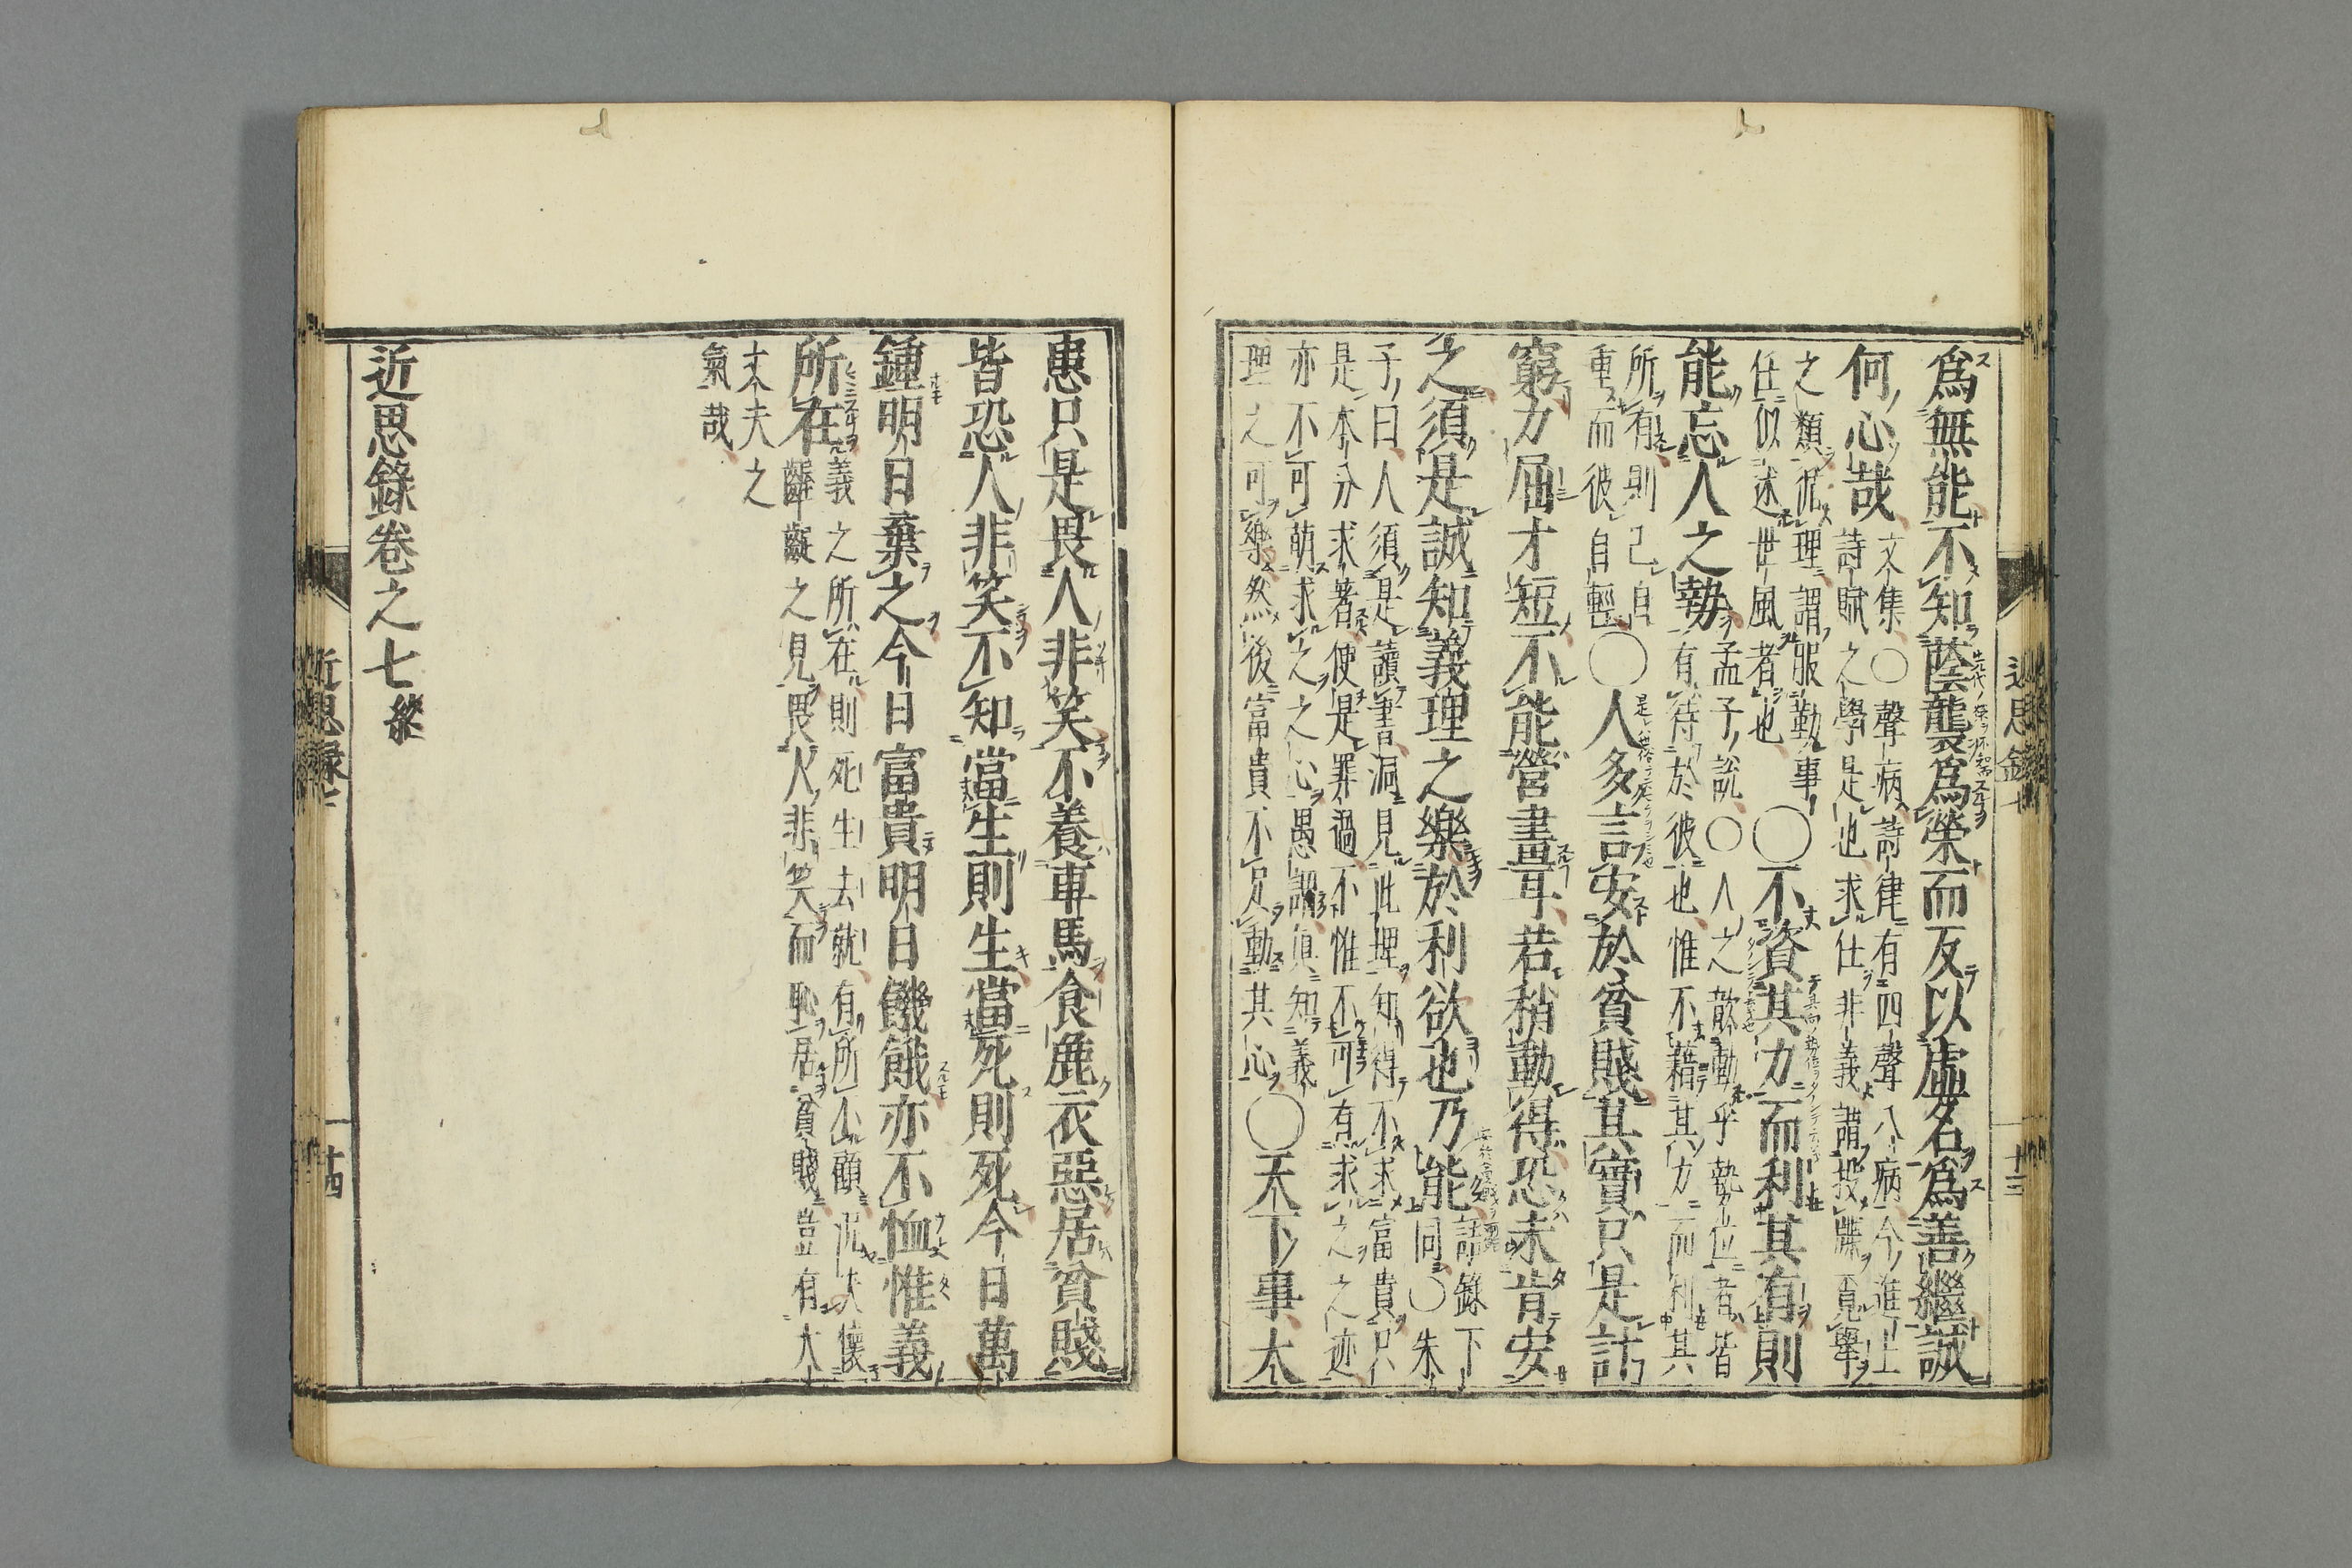 爲無能不知蔭襲爲榮而反以虛名爲善繼誠
何心哉
文集○聲病詩律有四聲八病今進士
詩賦之學是也求仕非義謂投牒覓舉
之類循理謂服勤事
任似述世風者也
○不資其力而利其有則
能忘人之勢
孟子說○人之歆動乎勢位者皆
有待於彼也惟不藉其力而利其
所有則己自
重而彼自輕
○人多言安於貧賤其實只是計
窮力屈才短不能營畫耳若稍動得恐未肯安
之須是誠知義理之樂於利欲也乃能
語錄下
同○朱
子曰人須是讀書洞見此理知得不求富貴只
是本分求著便是罪過不惟不可有求之之迹
亦不可萌求之之心愚謂須知義
理之可樂然後富貴不足動其心
○天下事大
近思錄七
十三
患只是畏人非笑不養車馬食麁衣惡居貧賤
皆恐人非笑不知當生則生當死則死今日萬
鍾明日棄之今日富貴明日饑餓亦不恤惟義
所在
義之所在則死生去就有所不顧况夫懷
齷齪之見畏人非笑而恥居貧賤豈有大
丈夫之
氣哉
近思錄卷之七終
近思錄七
十四